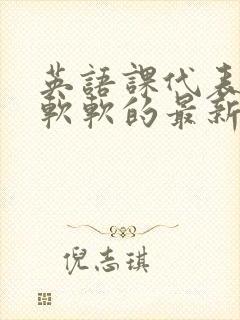 英語課代表
軟軟的最新
倪志琪